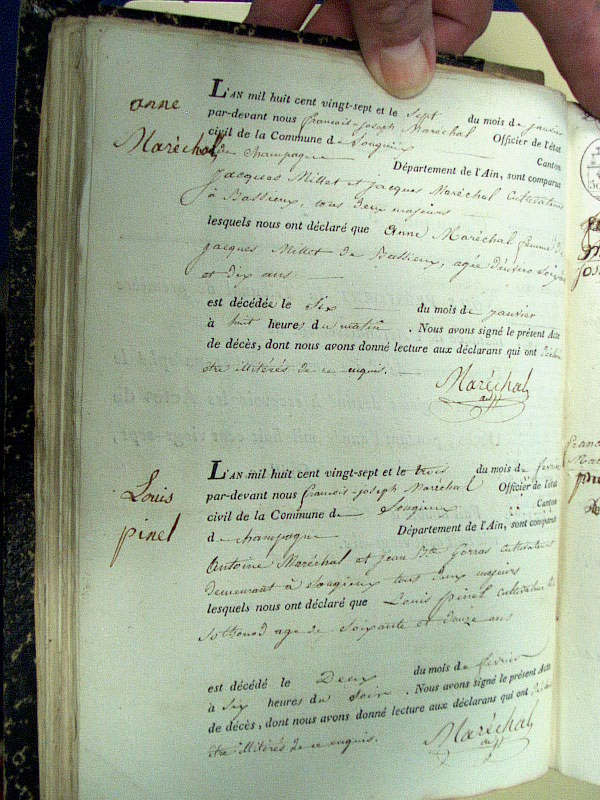 anne
Maréchal
L'AN mil huit cent vingt-sept et le sept du mois de janvier
par-devant nous françois-joseph Maréchal Officier de l'état
civil de la Commune de Songieu Canton
de champagne Département de l'Ain, sont comparus
jacques Millet et jacques Maréchal cultivateurs
à Bassieux, tous deux majeurs
lesquels nous ont déclaré que anne Maréchal femme de
jacques Millet de Bassieux, agée d'environ Soixante
et dix ans
est décédée le Six du mois de janvier
à huit heures du matin . Nous avons signé le présent Acte
de décès, dont nous avons donné lecture aux déclarans qui ont déclaré
être illitérés de ce enquis.
Maréchal
Louis
pinel
L'AN mil huit cent vingt-sept et le trois du mois de février
par-devant nous françois-joseph Maréchal Officier de l'état
civil de la Commune de Songieu Canton
de champagne Département de l'Ain, sont comparus
Antoine Maréchal et jean Bte cultivateurs
demeurant à Songieux tous deux majeurs
lesquels nous ont déclaré que Louis pinel cultivateur
Sothonod age de Soixante et douze ans
est décédé le Deux du mois de février
à Six heures du Soir . Nous avons signé le présent Acte
de décès, dont nous avons donné lecture aux déclarans qui ont déclaré
être illitérés de ce enquis.
Maréchal